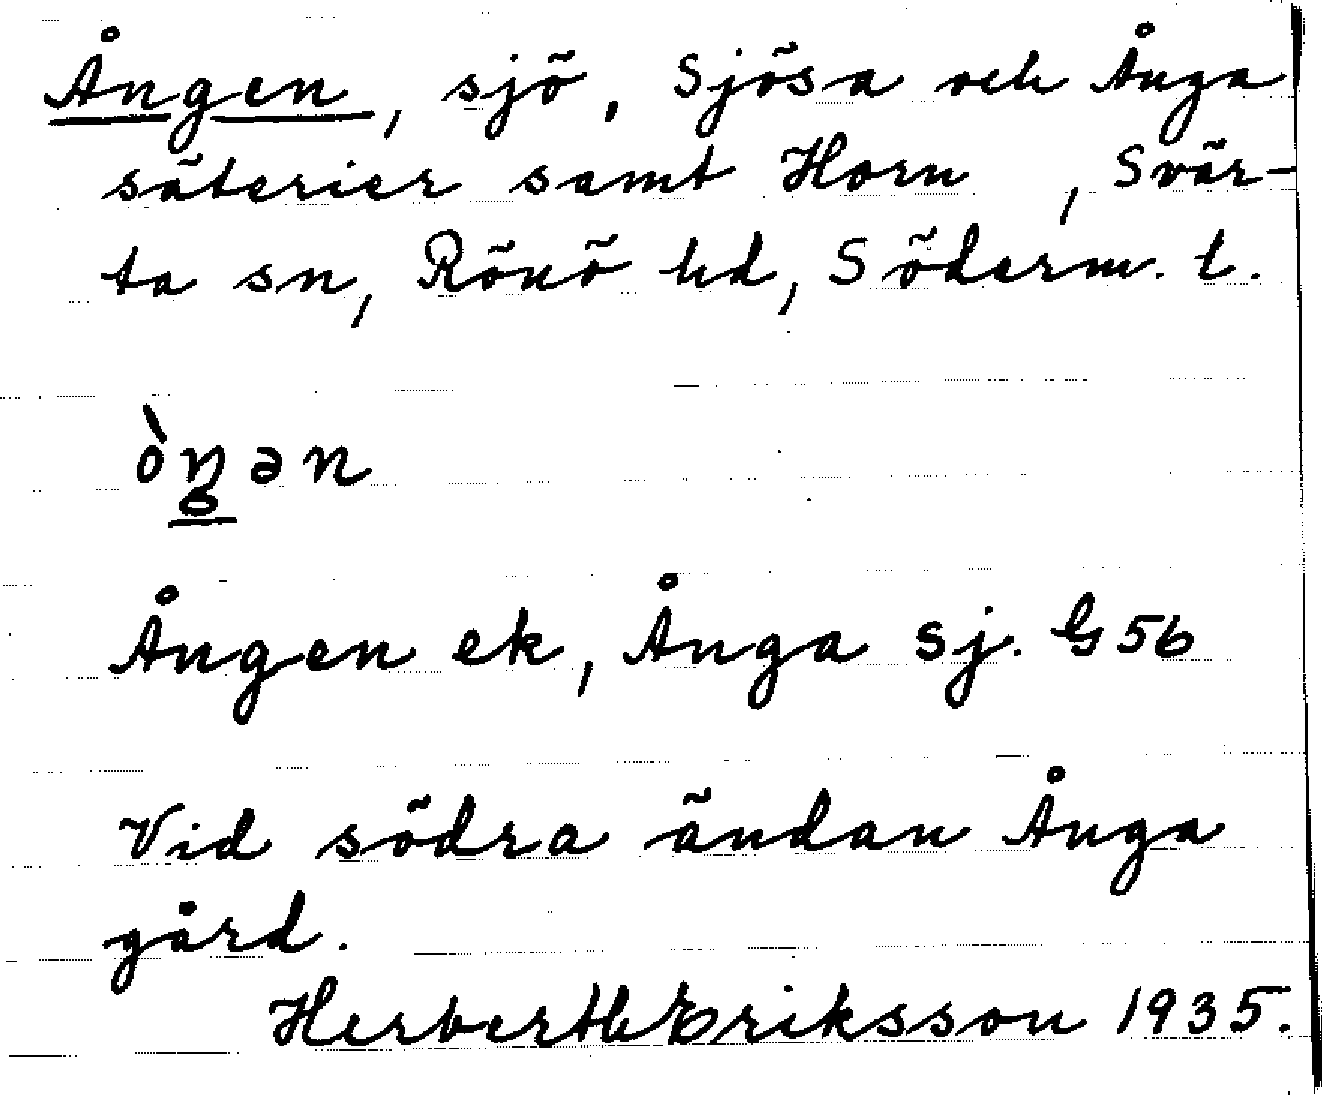 Ången, sjö, Sjösa och Ånga
säterier samt Horn , Svär-
ta sn, Rönö hd, Söderm. l.
òŋən
Ången ek, Ånga sj. G56
Vid södra ändan Ånga
gård.
Herbert Eriksson 1935.